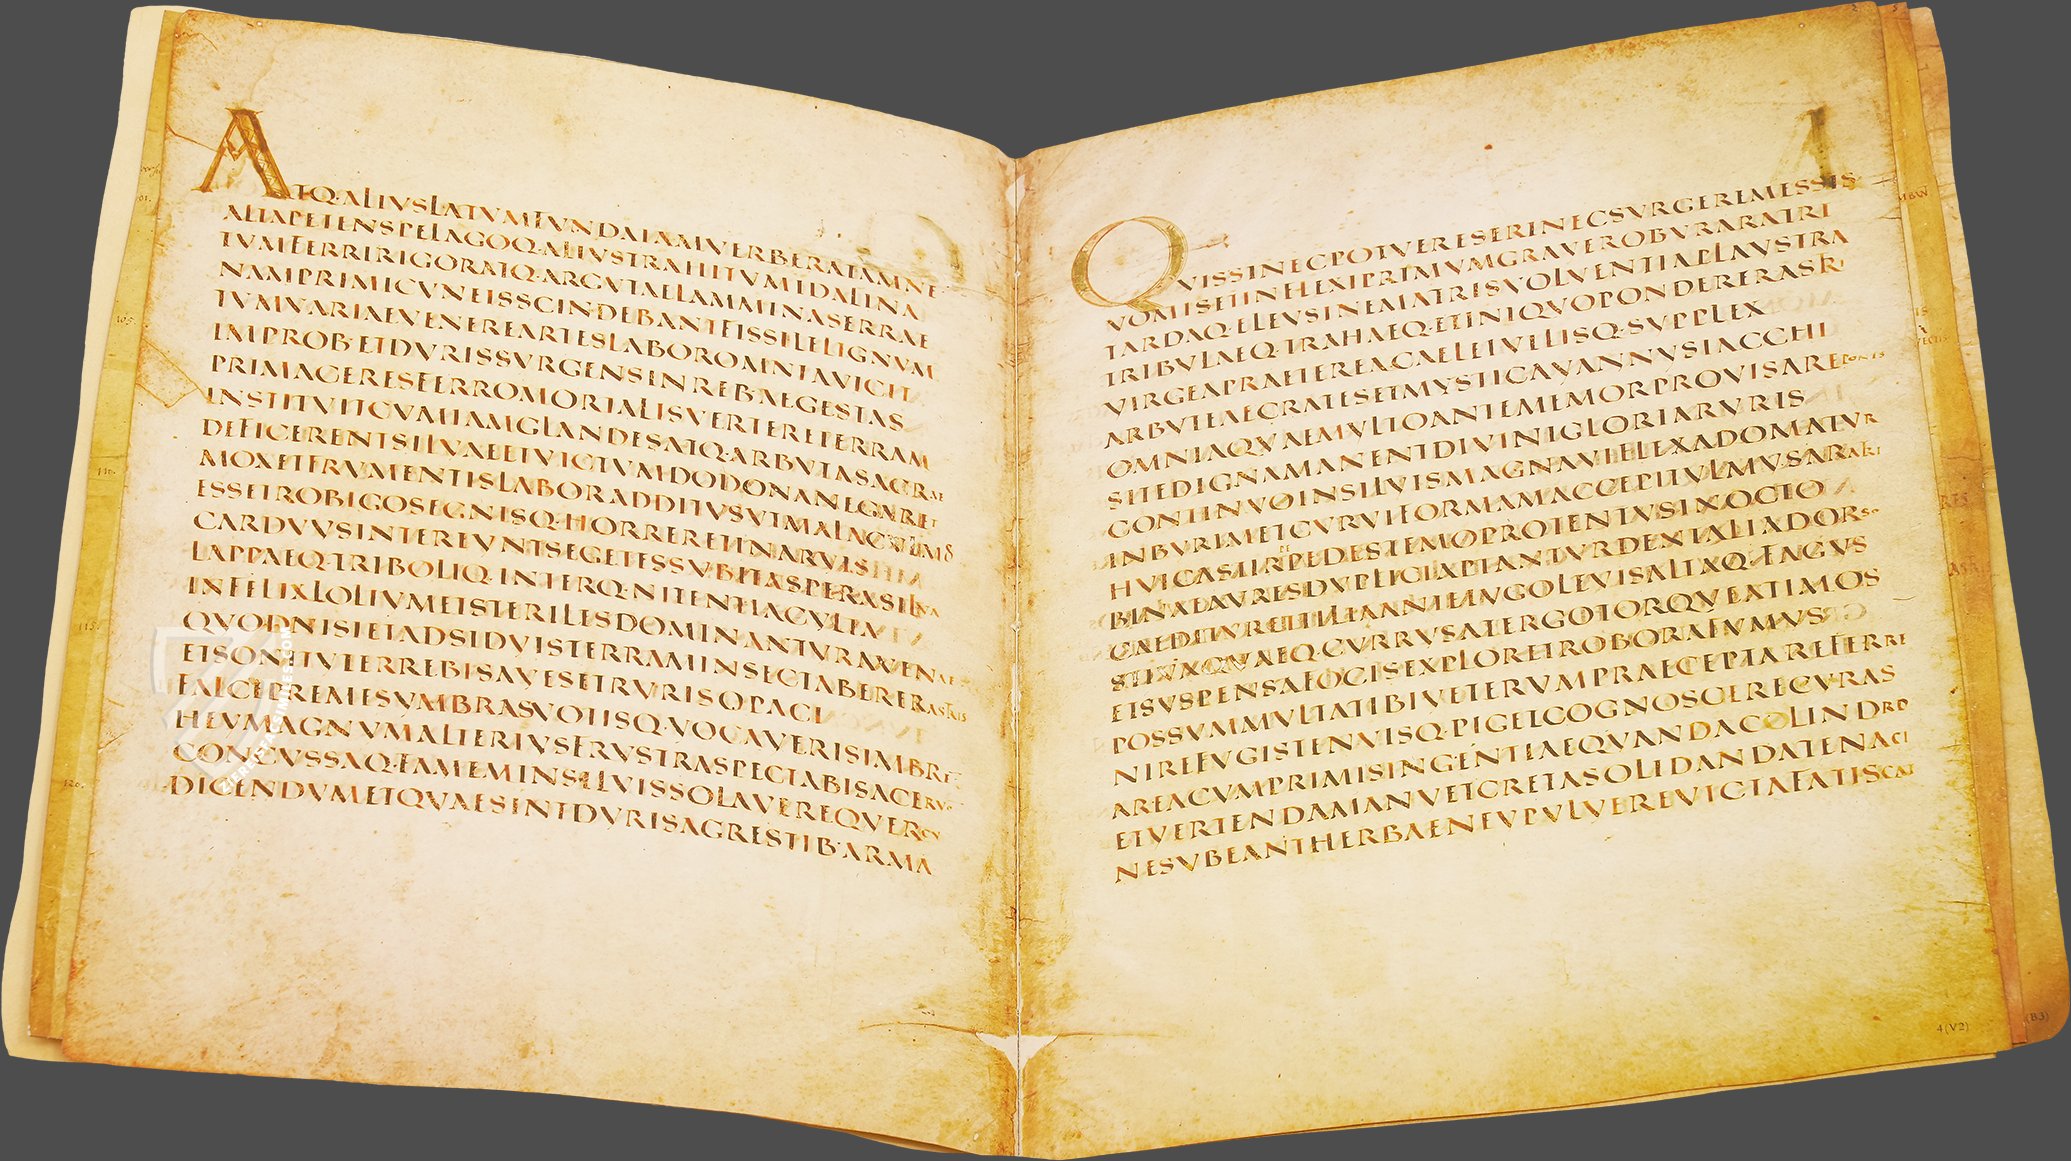 ATQ·ALIVSLATVMFVNDAIAMVERBERATAMNE
ALTAPETENSPELAGOQ·ALIVSTRAHITVMIDALINA
TVMFERRIRIGORATQ·ARGVTAELAMMINASERRAE
NAMPRIMICVNEISSCINDEBANTFISSILELIGNVM
TVMVARIAEVENEREARTESLABOROMNIAVICIT
IMPROB·ETDVRISSVRGENSINREB·AEGESTAS
PRIMACERESFERROMORTALISVERTERETERRAM
INSTITVITCVMIAMGLANDESATQ·ARBVTASACRAE
DEFICERENTSILVAEETVICTVMDODONANEGARET
MOXETFRVMENTISLABORADDITVSVTMALA
ESSETROBIGOSEGNISQ·HORRERETINARVIS
CARDVVSINTEREVNTSEGETESSVBITASPERASILVA
LAPPAEQ·TRIBOLIQ·INTERQ·NITENTIACVLTA
INFELIXLOLIVMETSTERILESDOMINANTVRAVENAE
QVODNISIETADSIDVISTERRAMINSECTABERERASTRIS
ETSONITVTERREBISAVESETRVRISOPACI
FALCEPREMESVMBRASVOTISQ·VOCAVERISIMBRE
HEVMAGNVMALTERIVSFRVSTRASPECTABISACERVO
CONCVSSAQ·FAMEMINSILVISSOLAVEREQVERCV
DICENDVMETQVAESINTDVRISAGRESTIB·ARMA
QVISSINECPOTVERESERINECSVRGEREMESSIS
VOMISETINFLEXIPRIMVMGRAVEROBVRARATRI
TARDAQ·ELEVSINEMATRISVOLVENTIAPLAVSTRA
TRIBVLAEQ·TRAHAEQ·ETINIQVOPONDERERASRI
VIRGEAPRAETEREACAELEIVELISQ·SVPPLEX
ARBVTEAECRATESETMYSTICAVANNVSIACCHI
OMNIAQVAEMVLTOANTEMEMORPROVISAREPONIS
SITEDIGNAMANENTDIVINIGLORIARVRIS
CONTINVOINSILVISMAGNAVIFLEXADOMATVR
INBVRIMETCVRVIFORMAMACCEPITVLMVSARATRI
HVICASTIRPEPEDESTEMOPROTENTVSINOCTO
BINAEAVRESDVPLICIAPTANTVRDENTALIADORSO
CAEDITVRETTILIAANTEIVGOLEVISALTAQ·FAGVS
STIVAQVAEQ·CVRRVSATERGOTORQVEATIMOS
ETSVSPENSAFOCISEXPLORETROBORAFVMVS
POSSVMMVLTATIBIVETERVMPRAECEPTAREFERRE
NIREFVGISTENVISQ·PIGETCOGNOSCERECVRAS
AREACVMPRIMISINGENTIAEQVANDACOLINDRO
ETVERTENDAMANVETCRETASOLIDANDATENACI
NESVBEANTHERBAENEVPVLVEREVICTAFATISCAT
4(V2)
(B3)